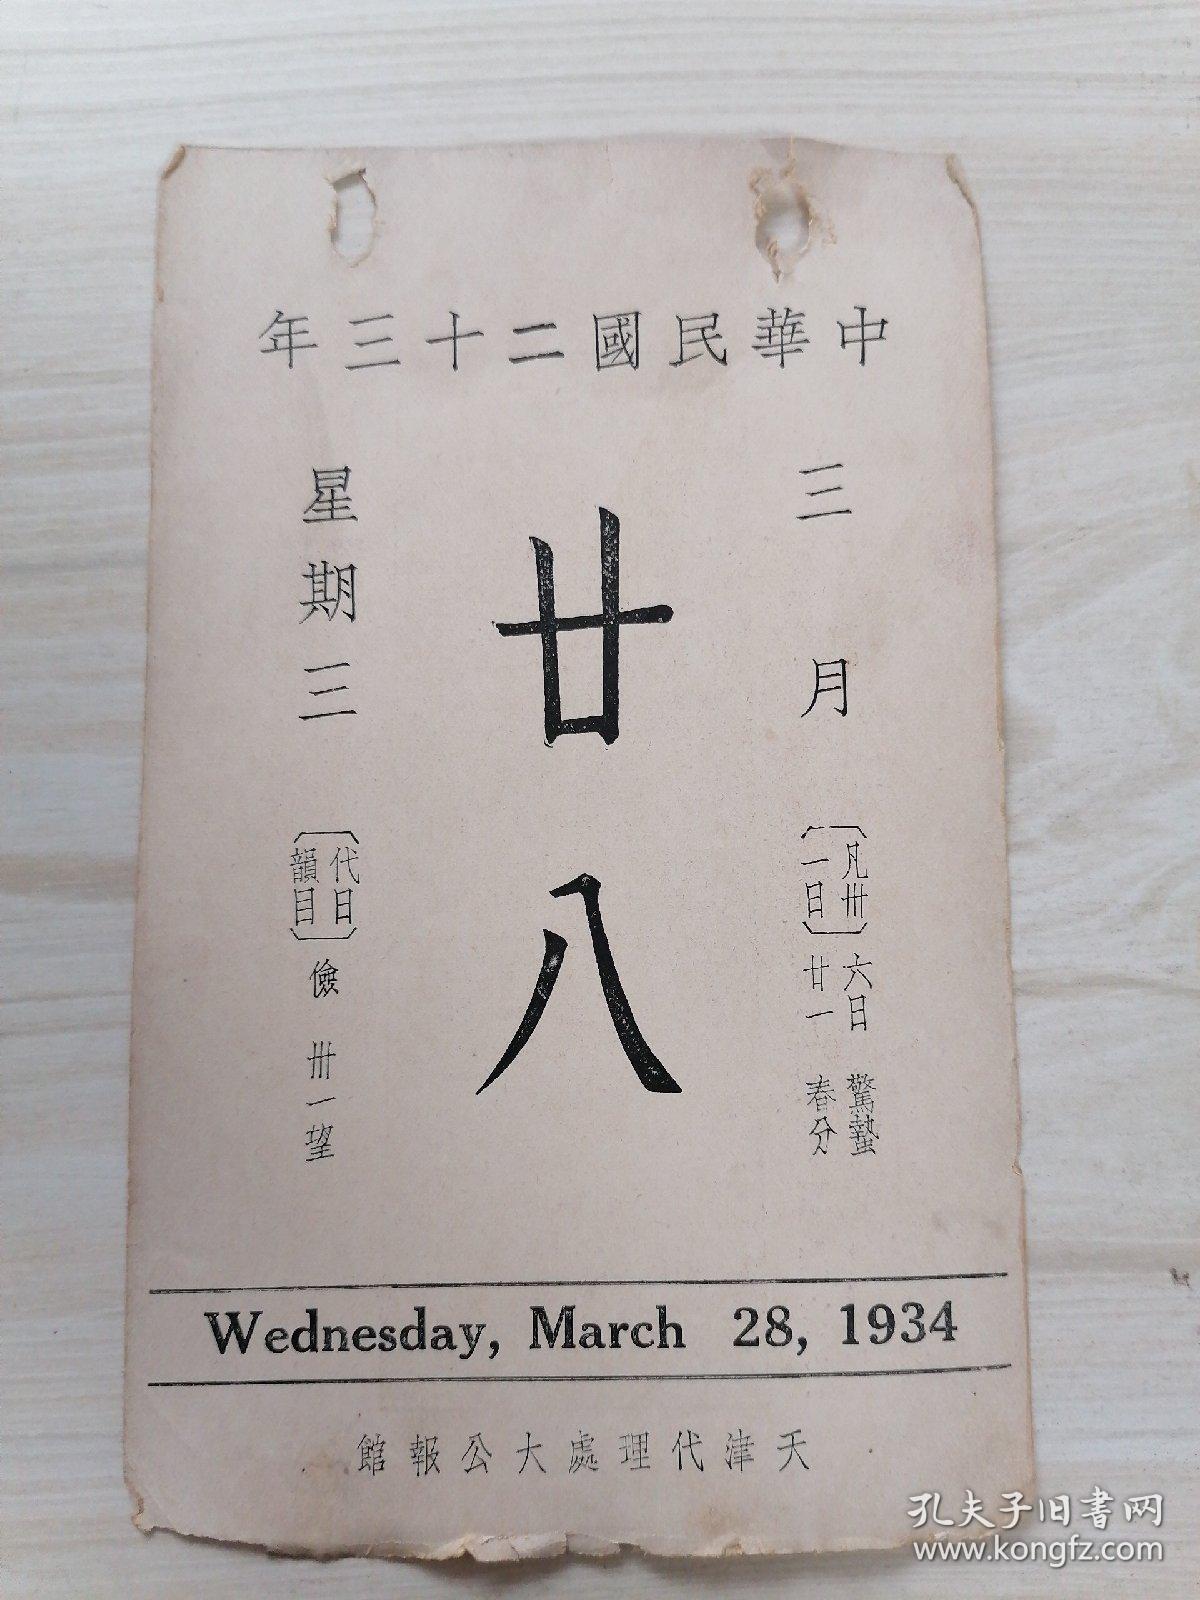 中華民國二十三年
三月
〔凡卅一日〕
六日 驚蟄
廿一 春分
廿八
星期三
〔代日韻目〕儉 卅一望
Wednesday, March 28, 1934
天津代理處大公報館
孔夫子旧书网
www.kongfz.com